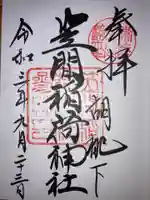 奉拝
胡桃下
笠間稲荷神社
令和三年九月二十三日